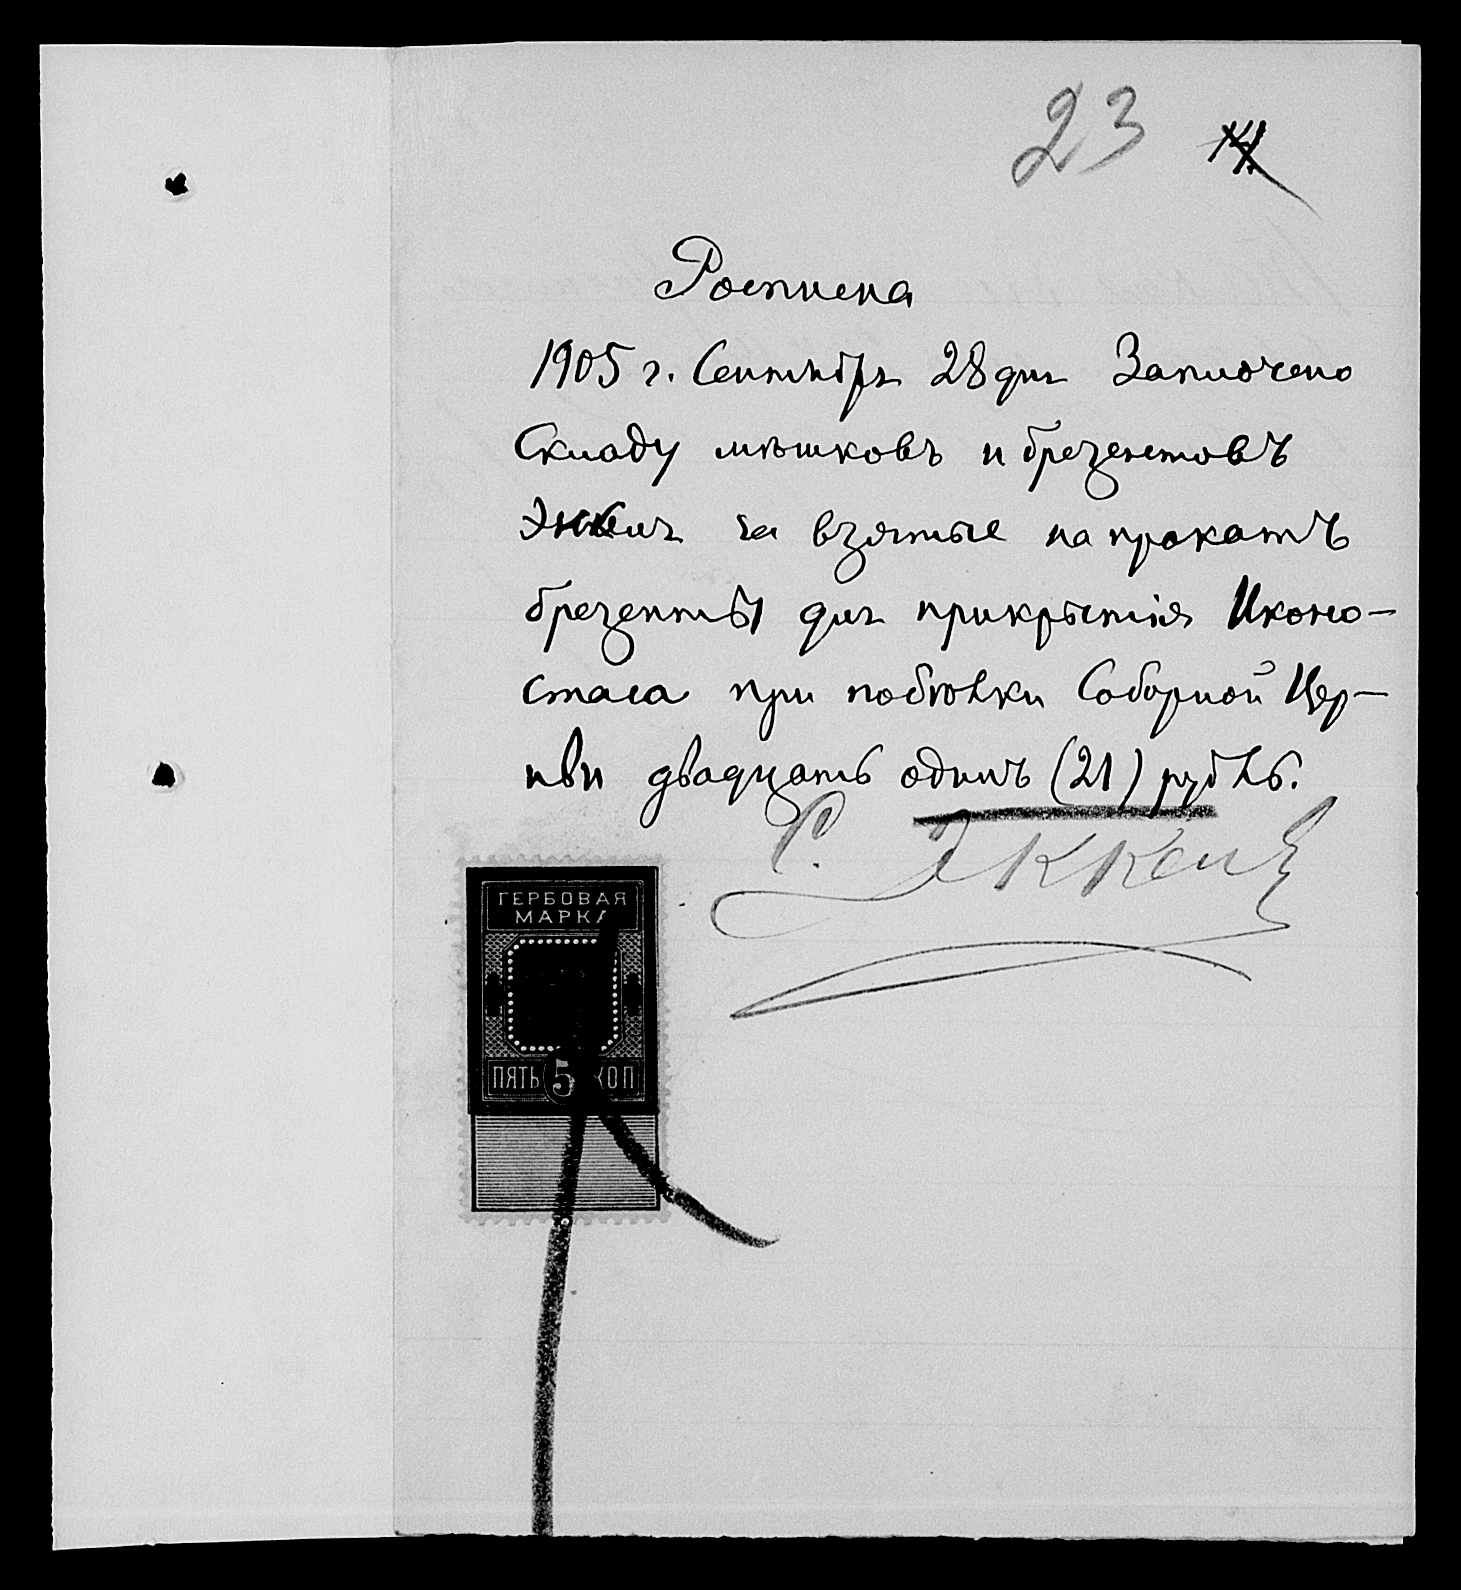 23
14
Росписка
1905 г. Сентября 28 дня Заплочено
Складу мѣшковъ и брезентовъ
Эккеля за взятые на прокатъ
брезенты для прикрытія Иконо-
стаса при побѣлки Соборной Цер-
кви двадцать одинъ (21) рубль.
С. Эккель
ГЕРБОВАЯ
МАРКА
ПЯТЬ 5 КОП